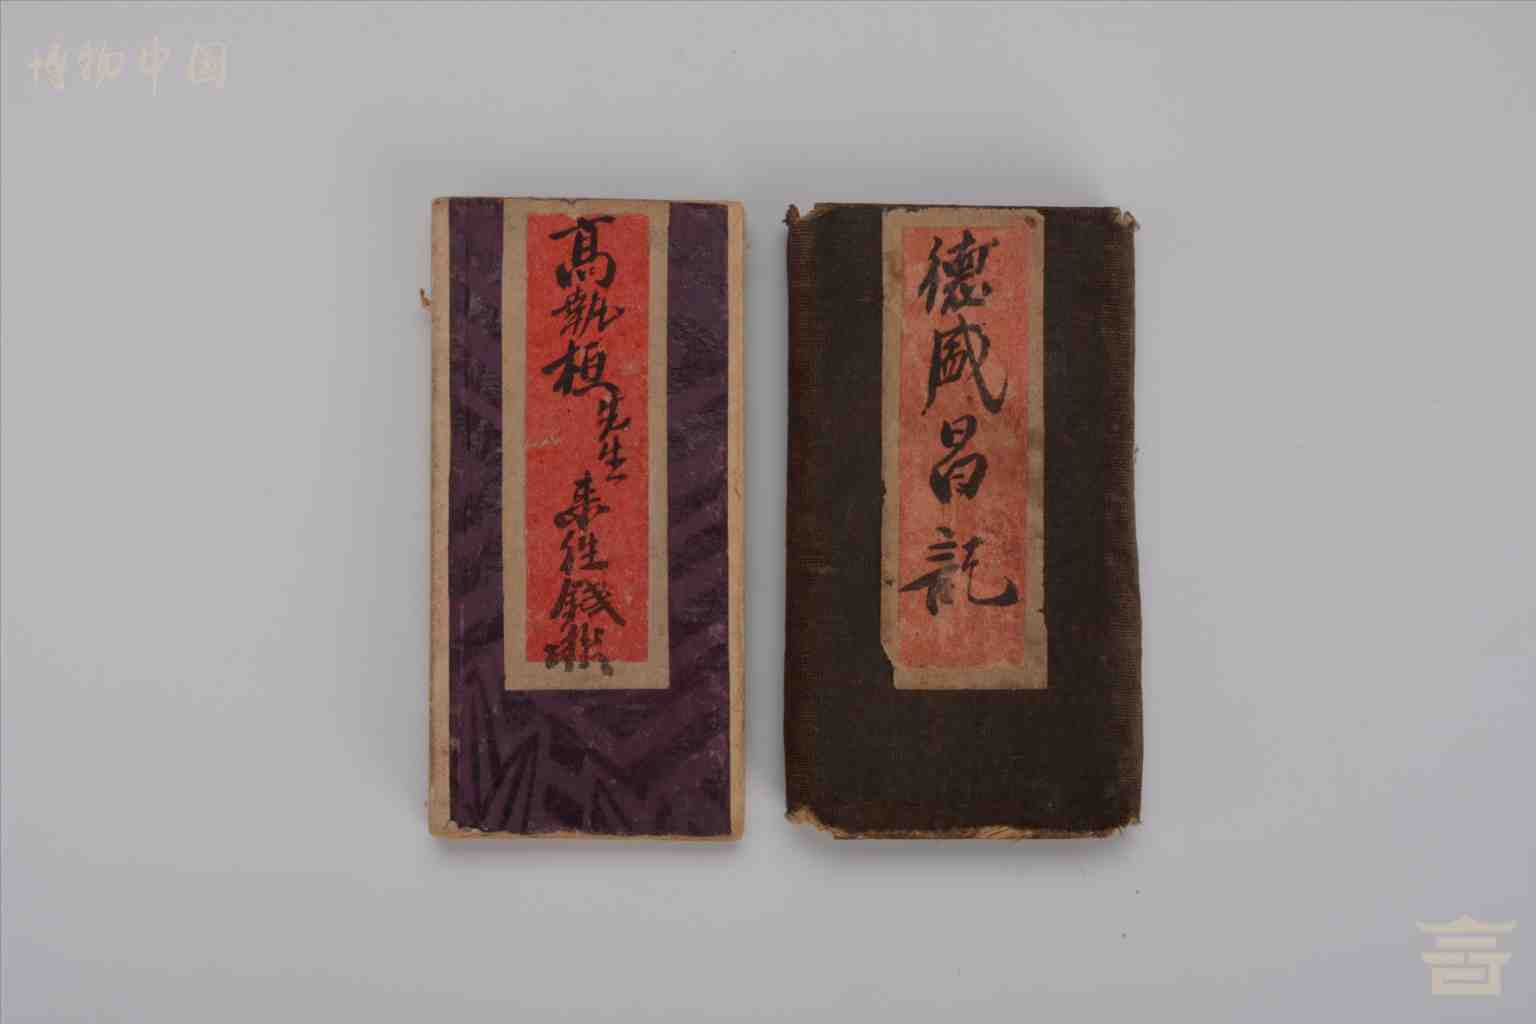 博物中国
高執桓先生来往錢摺
德盛昌記